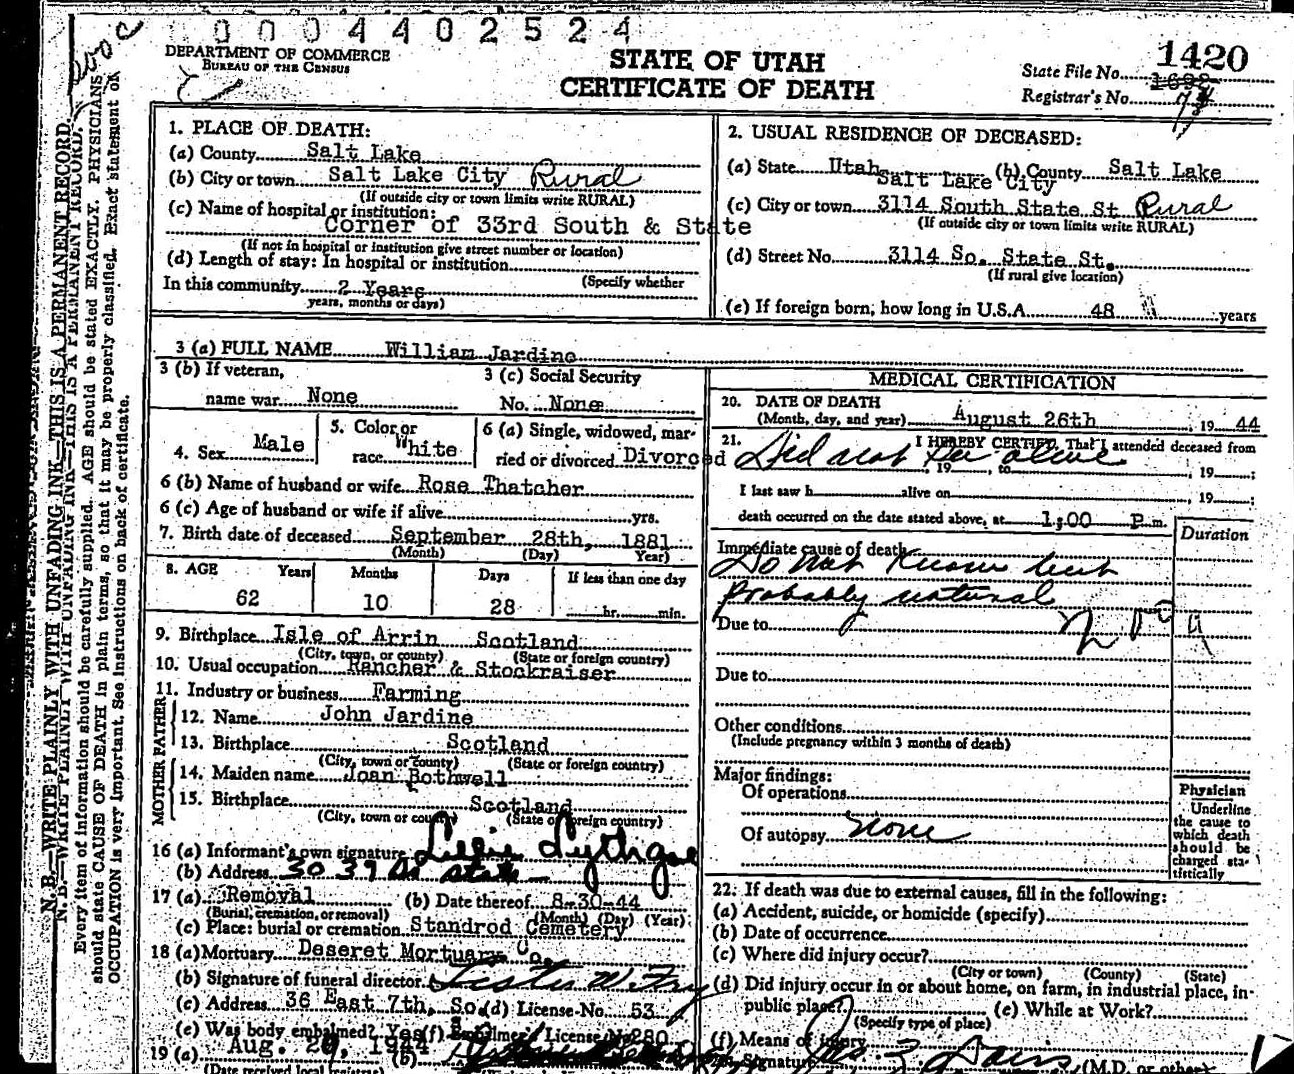 0004402524
DEPARTMENT OF COMMERCE
BUREAU OF THE CENSUS
STATE OF UTAH
CERTIFICATE OF DEATH
1420
State File No. 1692
Registrar's No.
N. B.—WRITE PLAINLY WITH UNFADING INK—THIS IS A PERMANENT RECORD.
N. B.—WRITE PLAINLY WITH UNFADING INK—THIS IS A PERMANENT RECORD.
Every item of information should be carefully supplied. AGE should be stated EXACTLY. PHYSICIANS
should state CAUSE OF DEATH in plain terms, so that it may be properly classified. Exact statement of
OCCUPATION is very important. See instructions on back of certificate.
1. PLACE OF DEATH:
(a) County Salt Lake
(b) City or town Salt Lake City Rural
(If outside city or town limits write RURAL)
(c) Name of hospital or institution:
Corner of 33rd South & State
(If not in hospital or institution give street number or location)
(d) Length of stay: In hospital or institution
(Specify whether
In this community 2 Years
years, months or days)
2. USUAL RESIDENCE OF DECEASED:
(a) State Utah (b) County Salt Lake
Salt Lake City
(c) City or town 3114 South State St Rural
(If outside city or town limits write RURAL)
(d) Street No. 3114 So. State St.
(If rural give location)
(e) If foreign born, how long in U.S.A. 48 years
3 (a) FULL NAME William Jardine
3 (b) If veteran,
name war None
3 (c) Social Security
No. None
4. Sex Male
5. Color or
race White
6 (a) Single, widowed, mar-
ried or divorced Divorced
6 (b) Name of husband or wife Rose Thatcher
6 (c) Age of husband or wife if alive yrs.
7. Birth date of deceased September 28th, 1881
(Month) (Day) Year)
8. AGE Years Months Days If less than one day
62 10 28 hr. min.
9. Birthplace Isle of Arrin Scotland
(City, town, or county) (State or foreign country)
10. Usual occupation Rancher & Stockraiser
11. Industry or business Farming
FATHER
12. Name John Jardine
13. Birthplace Scotland
(City, town or county) (State or foreign country)
MOTHER
14. Maiden name Joan Bothwell
15. Birthplace Scotland
(City, town or county) (State or foreign country)
16 (a) Informant's own signature Lillie Lythgoe
(b) Address 3039 So State
17 (a) Removal (b) Date thereof 8-30-44
(Burial, cremation, or removal) (Month) (Day) (Year)
(c) Place: burial or cremation Standrod Cemetery
18 (a) Mortuary Deseret Mortuary Co.
(b) Signature of funeral director
(c) Address 36 East 7th, So. (d) License No. 53
(e) Was body embalmed? Yes (f) Embalmer's License No 280
19 (a) Aug. 29, 1944 (b)
(Date received local registrar)
MEDICAL CERTIFICATION
20. DATE OF DEATH
(Month, day, and year) August 26th, 19 44
21. I HEREBY CERTIFY, That I attended deceased from
Did not see alive
, 19 , to , 19 ;
I last saw h alive on , 19 ;
death occurred on the date stated above, at 1:00 P m.
Duration
Immediate cause of death
Do not know but
probably natural
Due to
Due to
Other conditions
(Include pregnancy within 3 months of death)
Major findings:
Of operations
Of autopsy none
Physician
Underline
the cause to
which death
should be
charged sta-
tistically
22. If death was due to external causes, fill in the following:
(a) Accident, suicide, or homicide (specify)
(b) Date of occurrence
(c) Where did injury occur?
(City or town) (County) (State)
(d) Did injury occur in or about home, on farm, in industrial place, in-
public place? (e) While at Work?
(Specify type of place)
(f) Means of injury
Signature (M.D. or other)